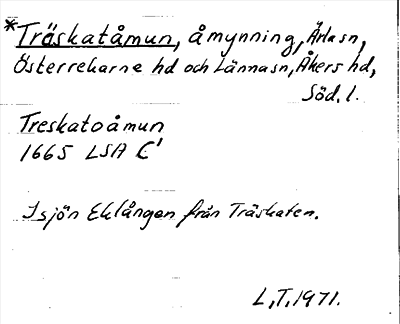 *Träskatåmun, åmynning, Ärlasn,
Österrekarne hd och Lännasn, Åkers hd,
Söd. l.
Treskatoåmun
1665 LSA C'
I sjön Eklången från Träskaten.
L.T. 1971.